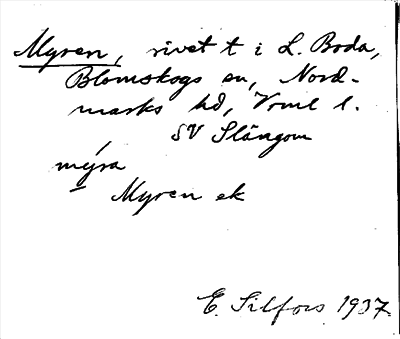 Myren, rivet t i L. Boda,
Blomskogs sn, Nord-
marks hd, Vrml l.
SV Slängom
mýra
Myren ek
E. Silfors 1937